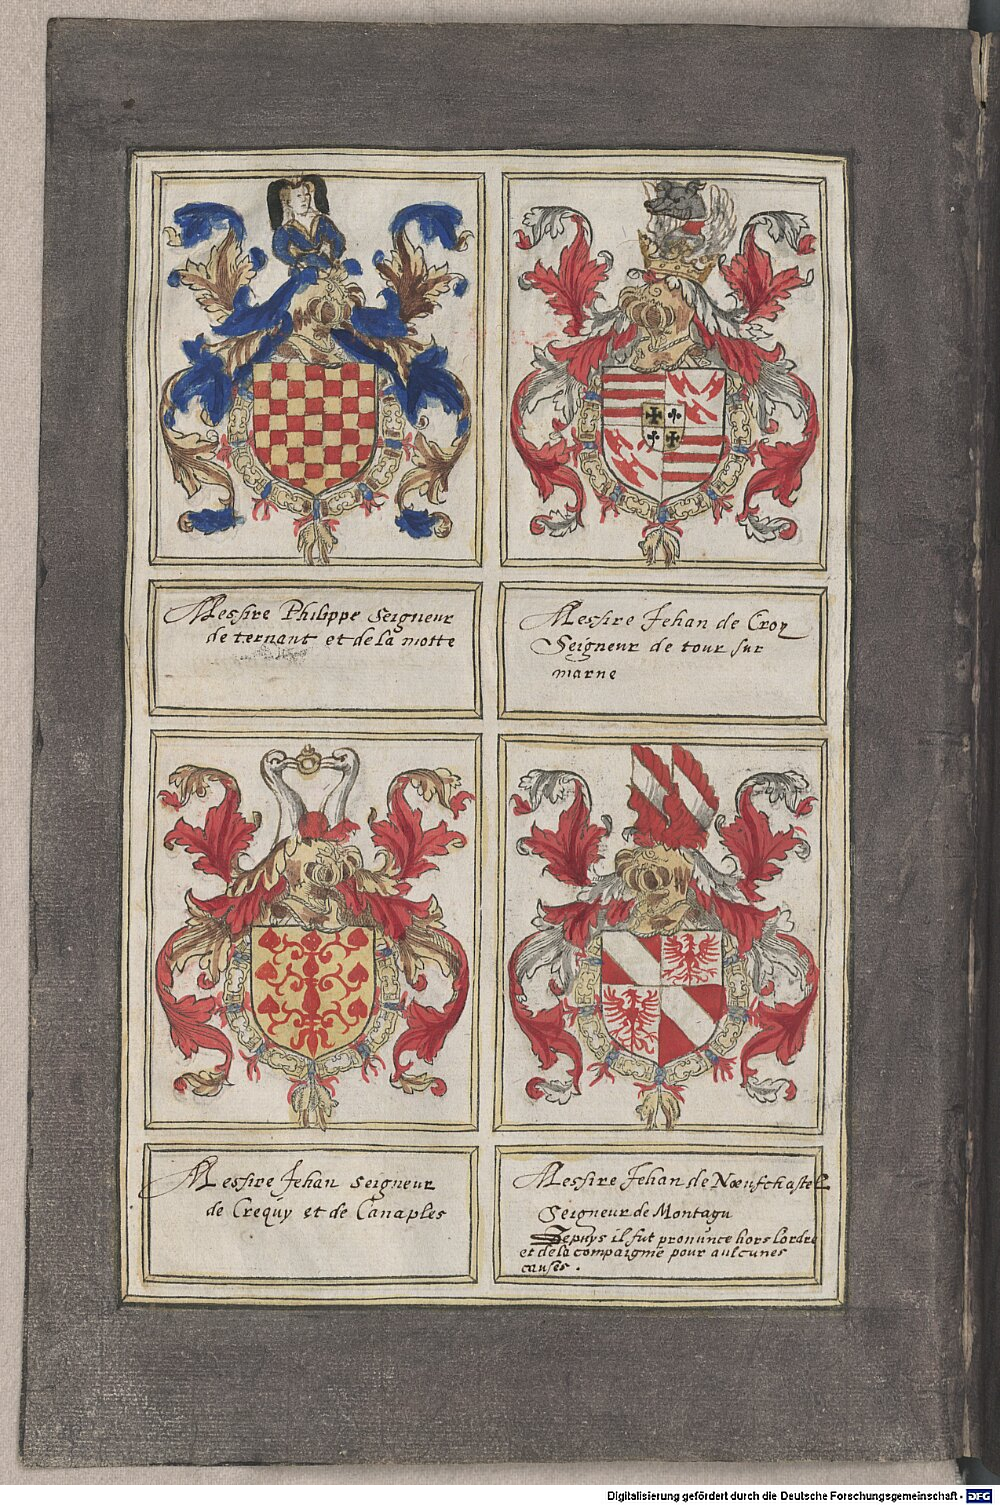 Messire Philippe Seigneur
de ternant et de la motte
Messire Jehan de Croy
Seigneur de tour sur
marne
Messire Jehan seigneur
de Crequy et de Canaples
Messire Jehan de Nœufchastel
Seigneur de Montagu
Depuys il fut pronunce hors lordre
et de la compaignie pour aulcunes
causes .
Digitalisierung gefördert durch die Deutsche Forschungsgemeinschaft - DFG